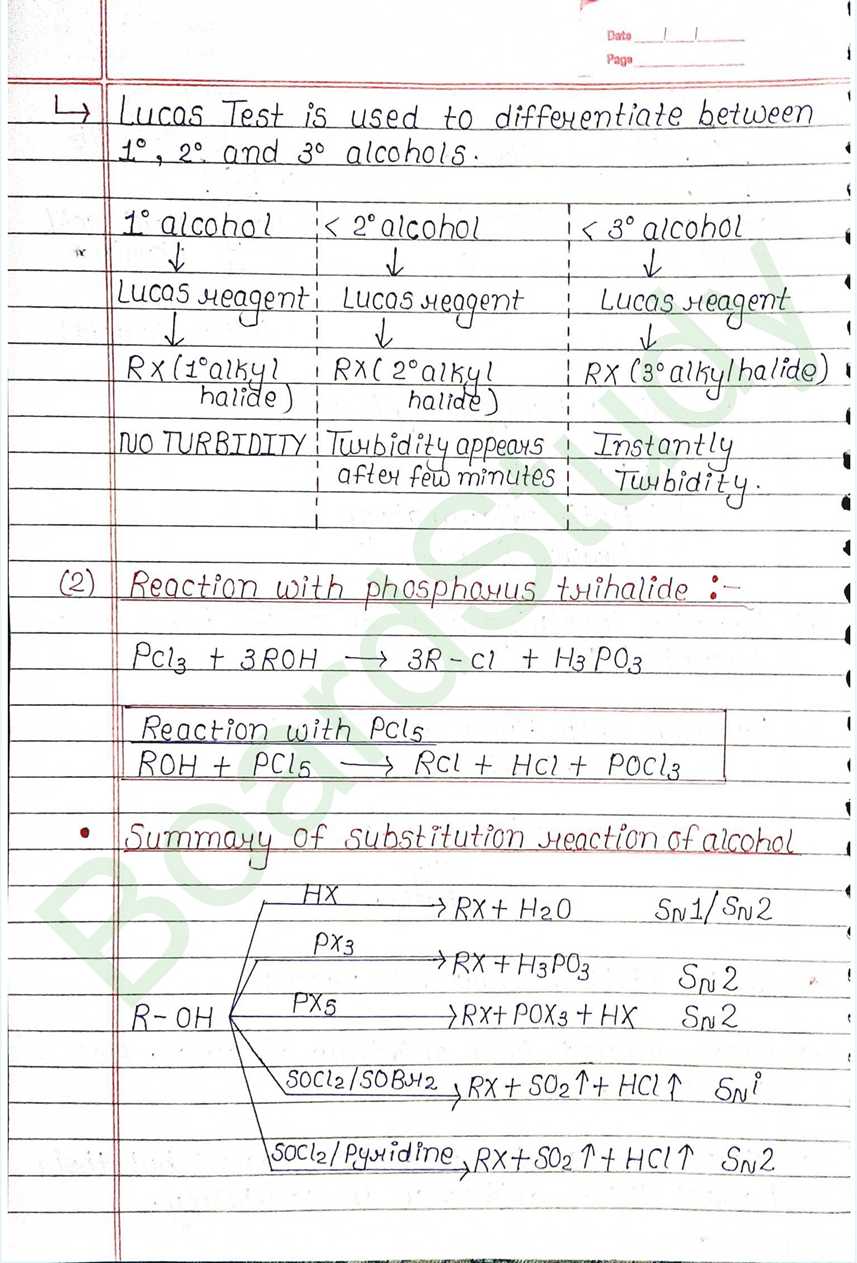 Date __/__/__
Page
↳ Lucas Test is used to differentiate between
1°, 2° and 3° alcohols.
1° alcohol < 2° alcohol < 3° alcohol
↓ ↓ ↓
Lucas reagent Lucas reagent Lucas reagent
↓ ↓ ↓
RX (1° alkyl RX ( 2° alkyl RX (3° alkylhalide)
halide) halide)
NO TURBIDITY Turbidity appears Instantly
after few minutes Turbidity.
(2) Reaction with phosphorus trihalide :-
PCl3 + 3ROH → 3R-Cl + H3PO3
Reaction with PCl5
ROH + PCl5 → RCl + HCl + POCl3
• Summary of substitution reaction of alcohol
HX → RX + H2O SN1/SN2
PX3 → RX + H3PO3 SN2
R-OH PX5 → RX + POX3 + HX SN2
SOCl2/SOBr2 → RX + SO2↑ + HCl↑ SNi
SOCl2/Pyridine → RX + SO2↑ + HCl↑ SN2
BoardStudy